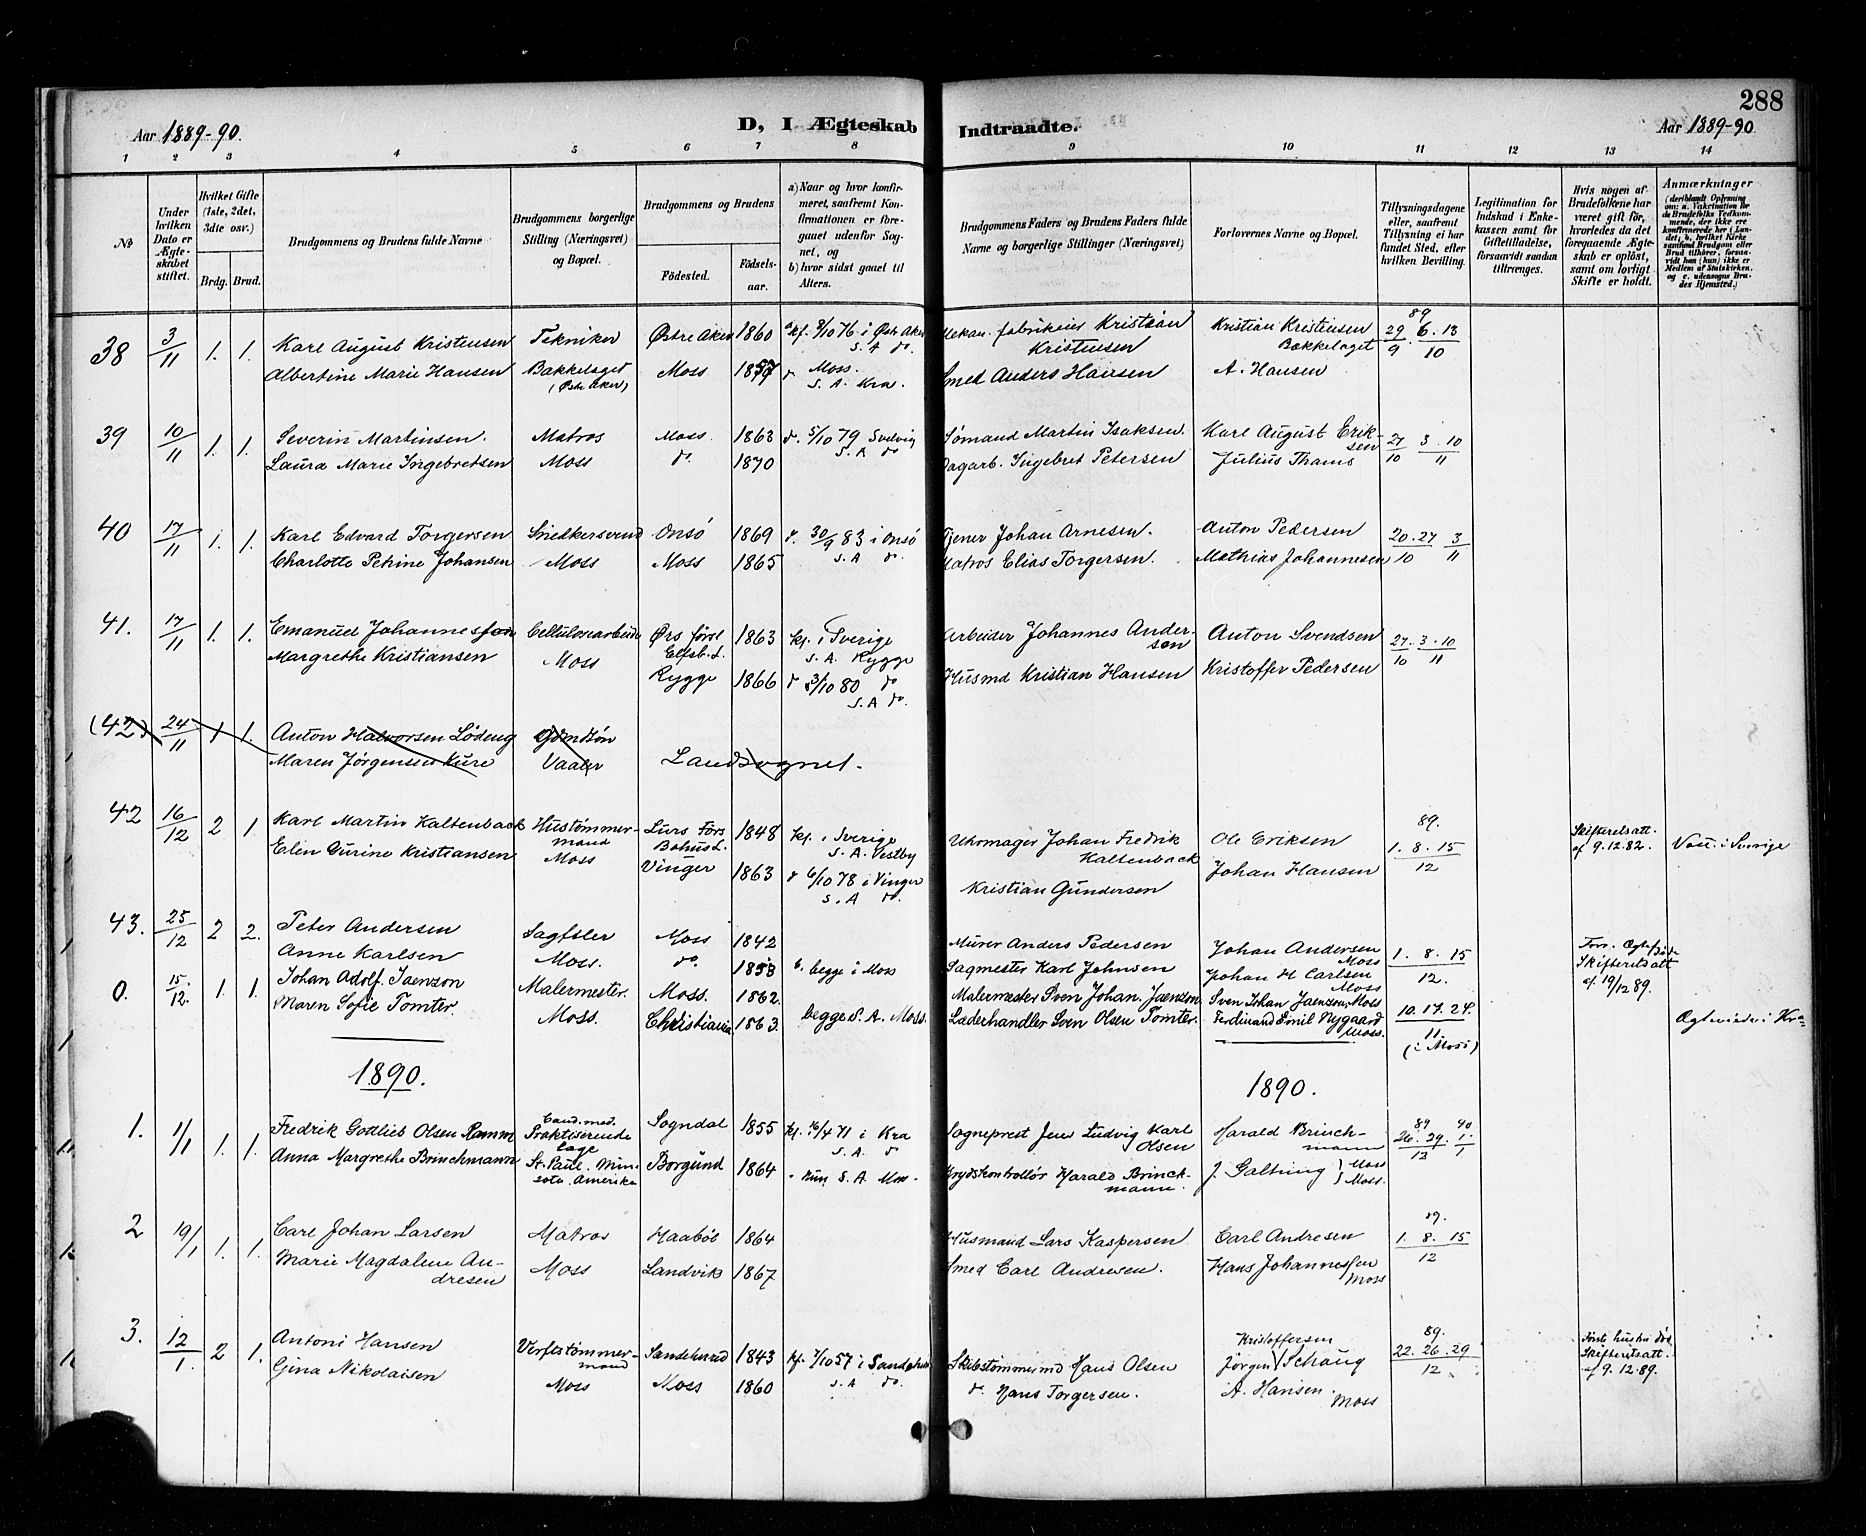 288
Aar 1889-90.
D, I Ægteskab Indtraadte.
Aar 1889-90
1 2 3 4 5 6 7 8 9 10 11 12 13 14
No
Under hvilken Dato er Ægteskabet stiftet.
Hvilket Gifte (1ste, 2det, 3dte osv.)
Brdg. Brud.
Brudgommens og Brudens fulde Navne
Brudgommens borgerlige Stilling (Næringsvei) og Bopæl.
Brudgommens og Brudens
Fødested.
Fødselsaar.
a) Naar og hvor konfirmeret, saafremt Konfirmationen er foregaaet udenfor Sognet, og
b) hvor sidst gaaet til Alters.
Brudgommens Faders og Brudens Faders fulde Navne og borgerlige Stillinger (Næringsvei)
Forlovernes Navne og Bopæl.
Tillysningsdagene eller, saafremt Tillysning ei har fundet Sted, efter hvilken Bevilling.
Legitimation for Indskud i Enkekassen samt for Giftetilladelse, forsaavidt saadan tiltrænges.
Hvis nogen af Brudefolkene har været gift før, hvorledes da det foregaaende Ægteskab er opløst, samt om lovligt Skifte er holdt.
Anmærkninger
38 3/11 1. 1. Karl August Kristensen Tekniker Østre Aker 1860 kf. 8/10 76 i Østr Aker S. A do. Mekan. fabrikeier Kristian Kristensen Kristian Kristensen Bækkelaget 89 29/9 . 6. 13/10
Albertine Marie Hansen Bækkelaget (Østr Aker) Moss 1857 Moss. S. A. Kra. Smed Anders Hansen A. Hansen
39 10/11 1. 1. Severin Martinsen. Matros Moss. 1863 do. 5/10 79 Svelvig S. A do Sømand Martin Isaksen. Karl August Eriksen 27/10 3. 10/11
Laura Marie Ingebretsen Moss do. 1870 Dagarb. Ingebret Petersen Julius Thams
40 17/11 1. 1. Karl Edvard Torgersen Snedkersvend Onsø 1869 do. 30/9 83 i Onsø S. A do. Tjener Johan Arnesen. Anton Pedersen 20. 27/10 3/11
Charlotte Petrine Johansen Moss Moss 1865 Matros Elias Torgersen. Mathias Johannesen
41. 17/11 1. 1. Emanuel Johannessen Cellulosearbeider Ørs førs. Elfsb. L. 1863 kf. i Sverige S. A. Rygge Arbeider Johannes Andersen Anton Svendsen 27/10 3. 10/11
Margrethe Kristiansen Moss Rygge 1866 do 3/10 80 do S. A do. Husmd Kristian Hansen Kristoffer Pedersen
(42) 24/11 1 1. Anton Halvorsen Lødeng Gdmdsøn
Maren Jørgensen Kure Vaaler Landsognet.
42 16/12 2 1 Karl Martin Kaltenback Hustømmermand Lurs Førs Bohusl. 1848 kf. i Sverige S. A. Vestby Uhrmager Johan Fredrik Kaltenback Ole Eriksen 89. 1. 8. 15/12 Skifteretsatt. af 9.12.82. Vacc. i Sverige
Elen Gurine Kristiansen Moss Vinger 1863 do 6/10 78 i Vinger S. A do. Kristian Gundersen Johan Hansen
43. 25/12 2 2. Peter Andersen Sagfsler Moss 1842 Murer Anders Pedersen Johan Andersen Moss 1. 8. 15/12.
Anne Karlsen Moss. do. 1853 b. begge i Moss Sagmester Karl Johnsen Johan H Carlsen Moss Skifteretsatt af. 19/12 89.
0. 15./12. 1. 1. Johan Adolf Jaenzon Malermester. Moss. 1862. Malermester Sven Johan Jaenzon. Sven Johan Jaenzon, Moss 10. 17. 24./11. (i Moss)
Maren Sofie Tomter. Moss. Christiania 1863. begge S. A. Moss. Læderhandler Sven Olsen Tomter. Ferdinand Emil Nygaard Moss. Ægtevieede i Kra
1890. 1890.
1. 1/1 1. 1. Fredrik Gottlieb Olsen Ramm Cand. med. Praktiserende Læge Sogndal 1855 kf. 16/4 71 i Kra S. A. do Sogneprest Jens Ludvig Karl Olsen Harald Brinchmann 89 90 26. 29./12 1./1
Anna Margrethe Brinchmann St. Paul. Minnesota. Amerika Borgund 1864 hun S. A. Moss. Krydskontrollør Harald Brinckmann. J. Galtung } Moss Moss.
2 19/1 1. 1. Carl Johan Larsen Matros Haabøl 1864 Husmand Lars Kaspersen Carl Andresen 89. 1. 8. 15/12
Marie Magdalene Andresen Moss Landvik 1867 Smed Carl Andresen. Hans Johannessen Moss
3. 12/1. 2 1. Antoni Hansen Verftstømmermand Sandeherred 1843 kf. 7/10 57 i Sandeher S. A do. Skibstømmermd Hans Olsen Jørgen Kristoffersen Schaug 89. 22. 26. 29/12 Første hustru død Skifteretsatt. af 9.12.89.
Gina Nikolaisen Moss Moss 1860 do. Hans Torgersen. A. Hansen. Moss